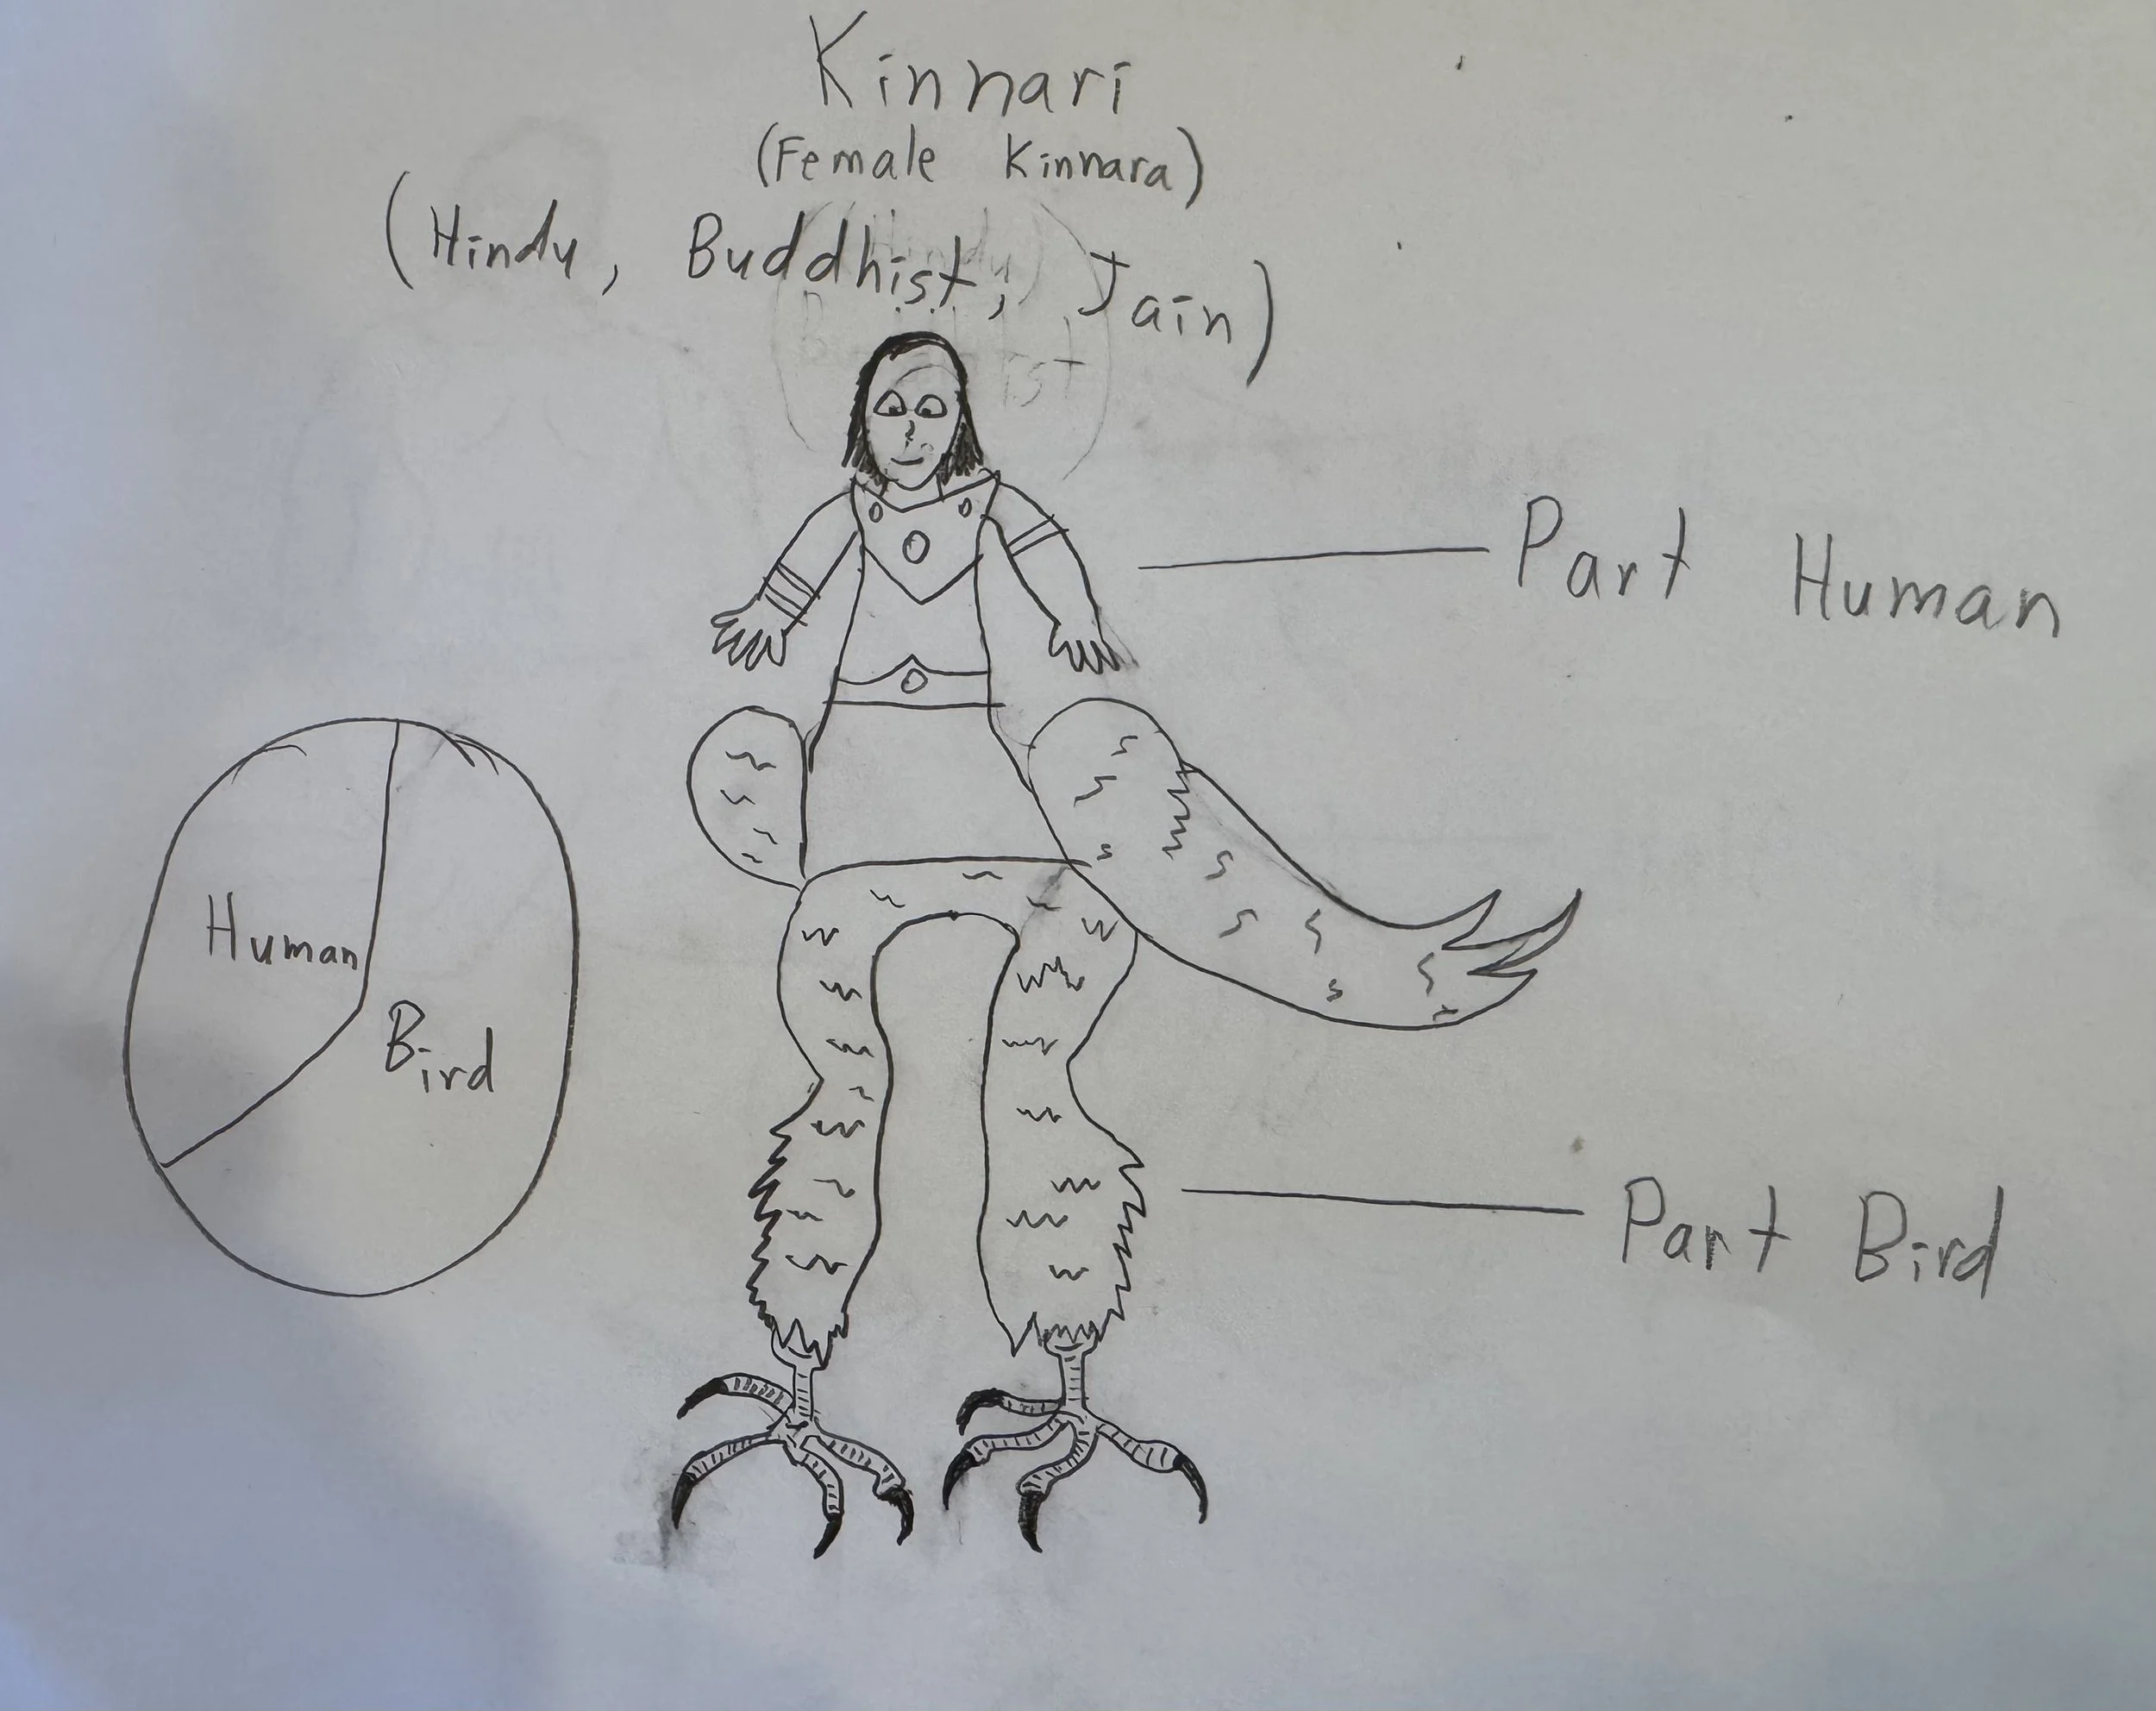 Kinnari
(Female Kinnara)
(Hindu, Buddhist, Jain)
Part Human
Human
Bird
Part Bird